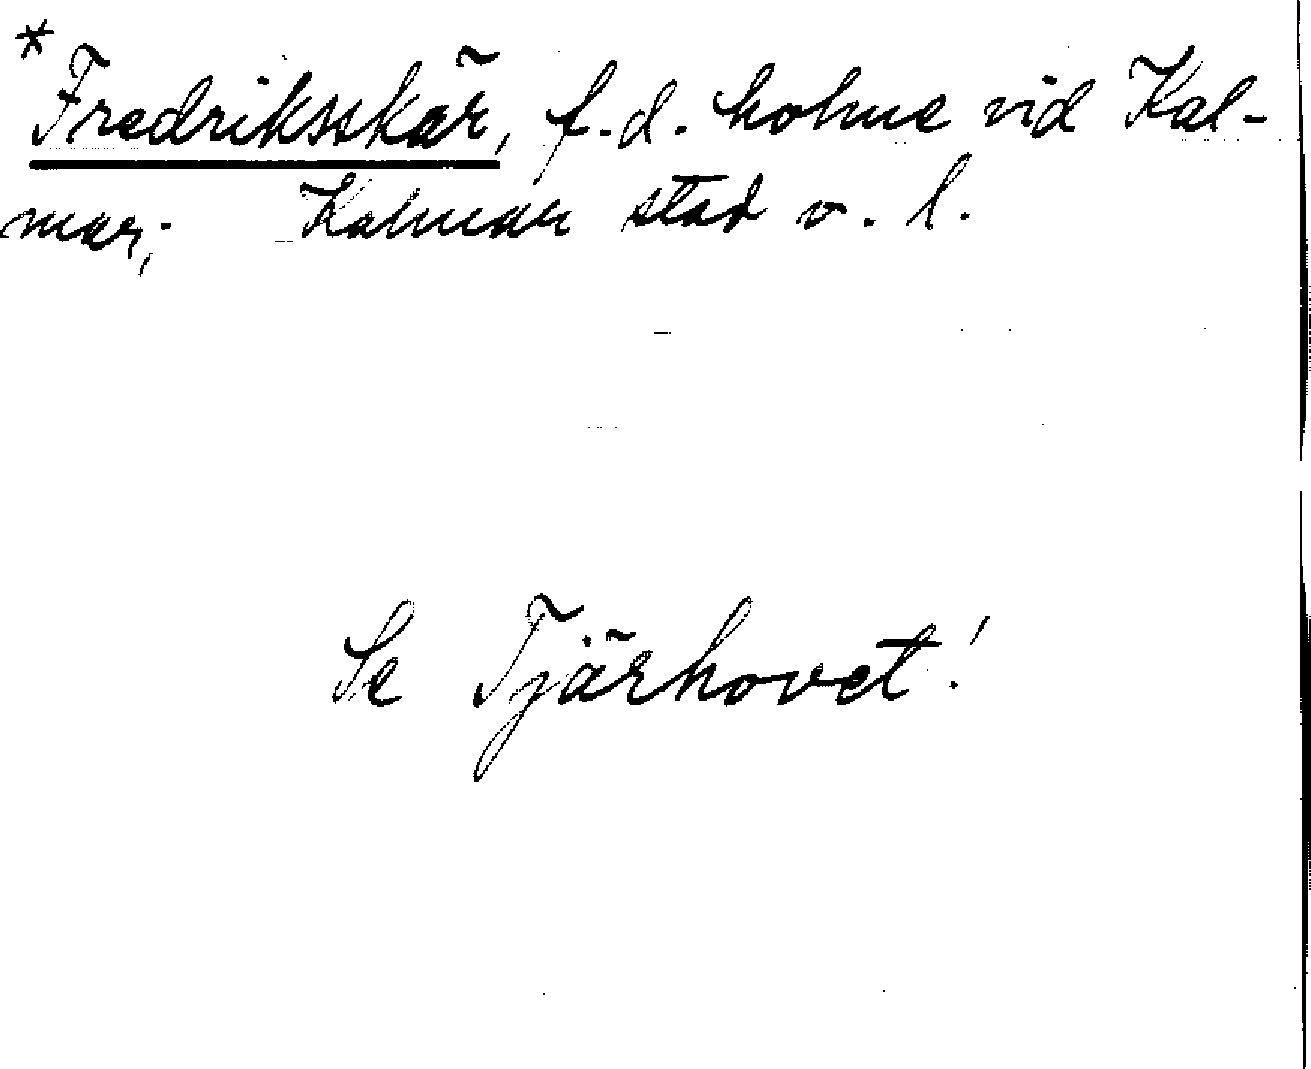 *Fredriksskär, f.d. holme vid Kal-
mar; Kalmar stad o. l.
Se Tjärhovet!